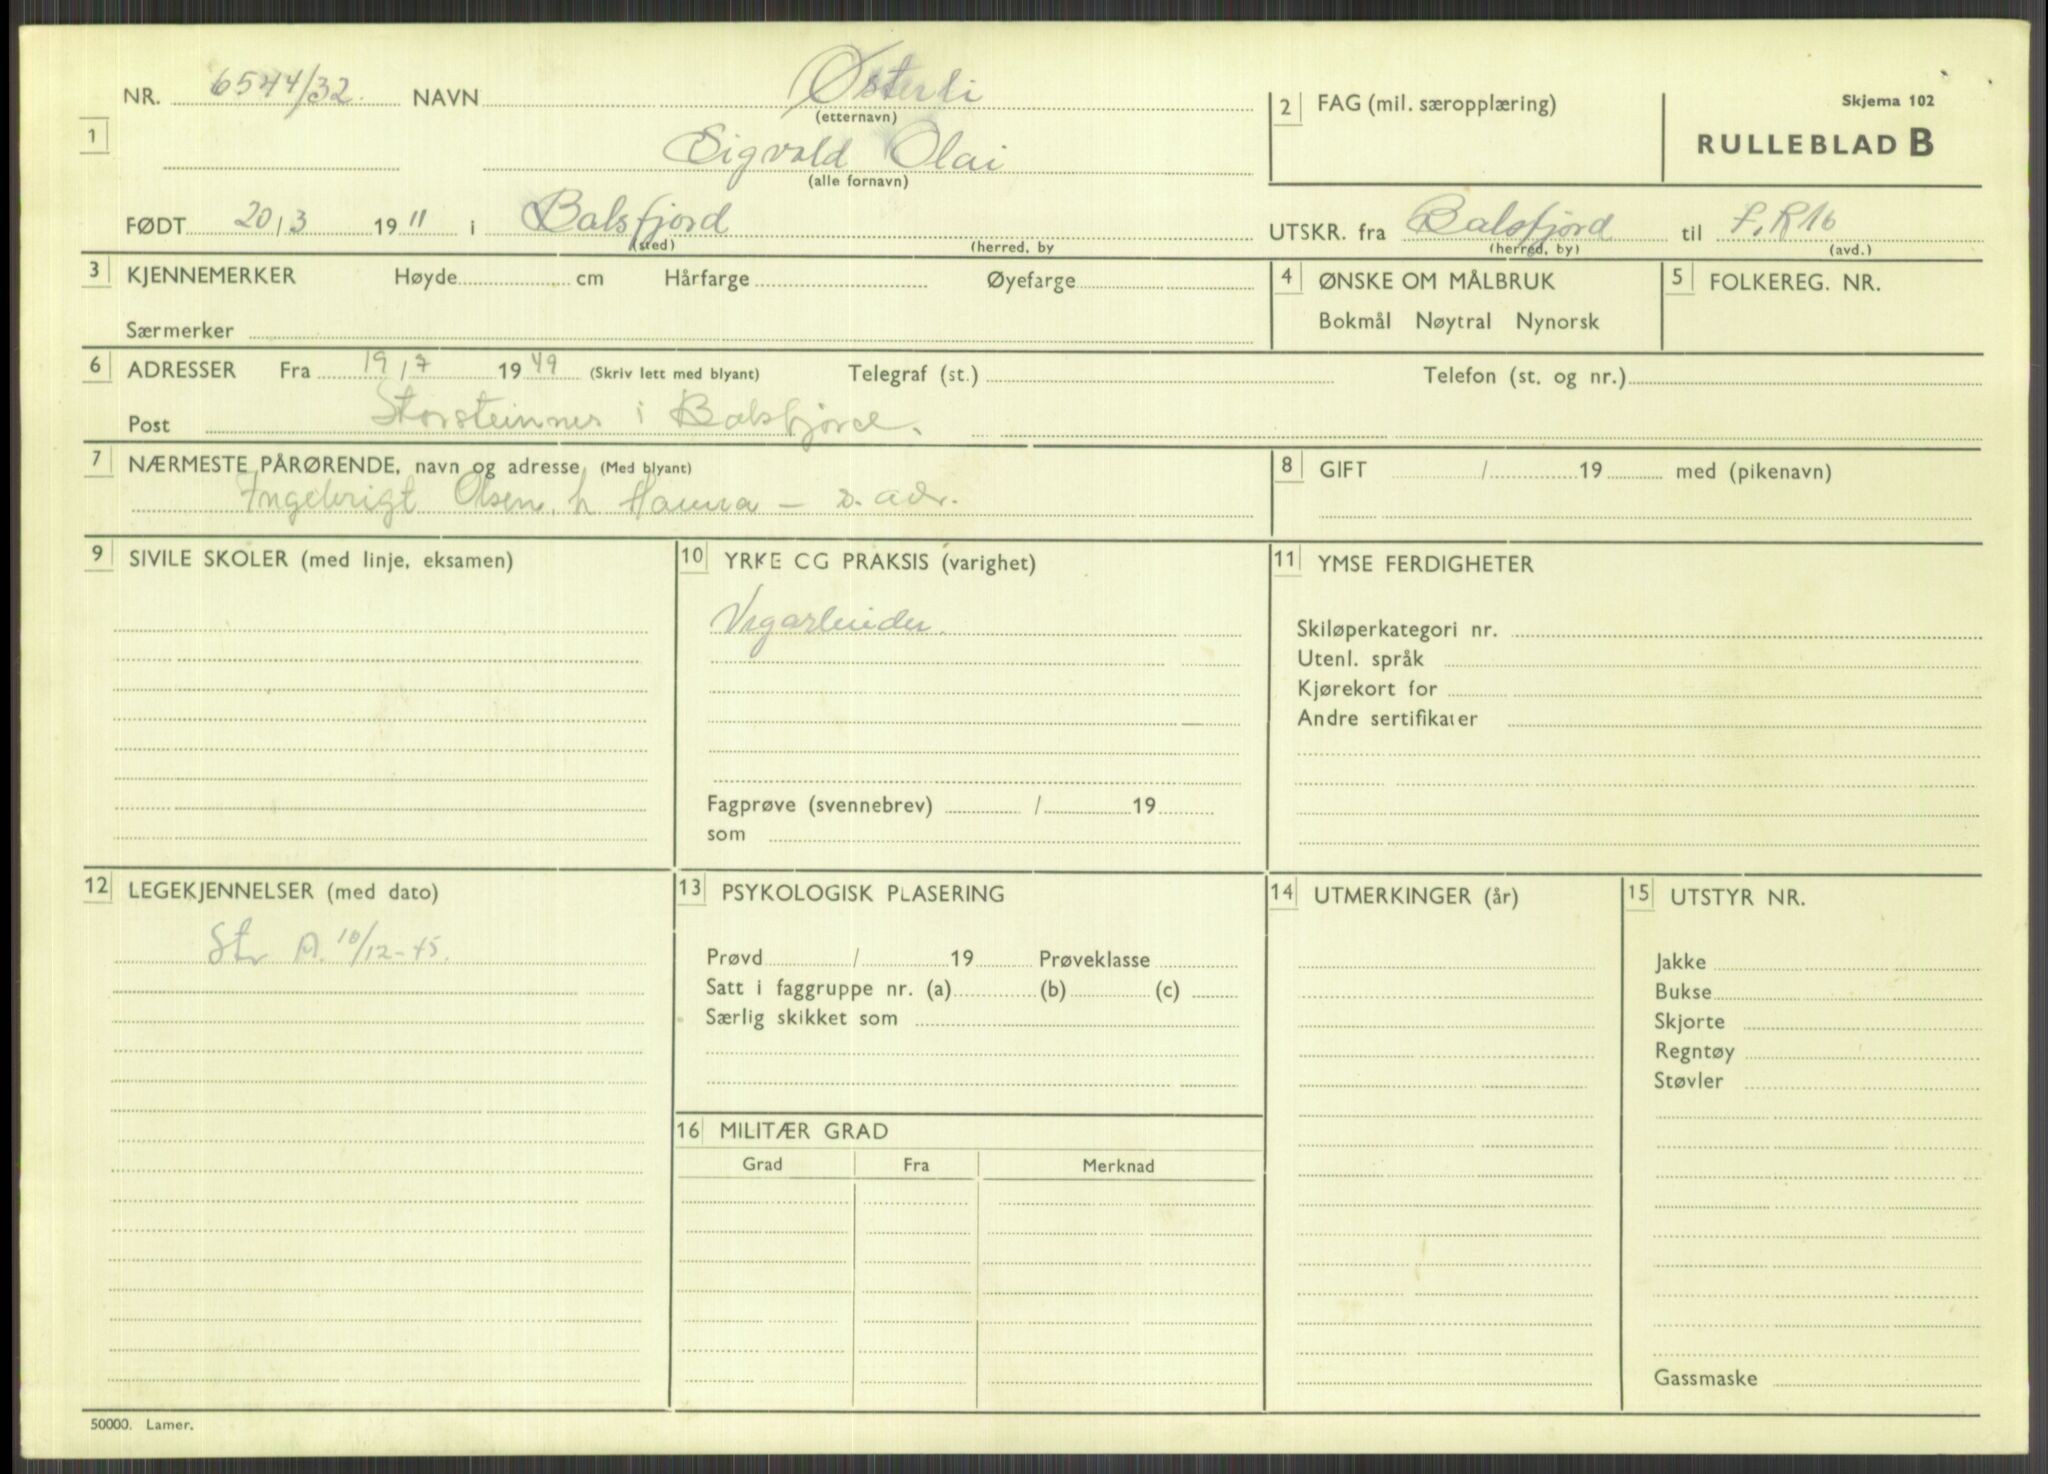 NR. 6544/32. NAVN Østerli
(etternavn)
2 FAG (mil. særopplæring)
Skjema 102
RULLEBLAD B
1
Sigvald Olai
(alle fornavn)
FØDT 20/3 1911 i Balsfjord
(sted) (herred, by
UTSKR. fra Balsfjord til F.R16
(herred, by) (avd.)
3 KJENNEMERKER Høyde cm Hårfarge Øyefarge
Særmerker
4 ØNSKE OM MÅLBRUK
Bokmål Nøytral Nynorsk
5 FOLKEREG. NR.
6 ADRESSER Fra 19/7 1949 (Skriv lett med blyant) Telegraf (st.) Telefon (st. og nr.)
Post Storsteinnes i Balsfjord.
7 NÆRMESTE PÅRØRENDE, navn og adresse (Med blyant)
Ingebrigt Olsen, h Hanna – s. adr.
8 GIFT / 19 med (pikenavn)
9 SIVILE SKOLER (med linje, eksamen)
10 YRKE CG PRAKSIS (varighet)
Vegarbeider.
Fagprøve (svennebrev) / 19
som
11 YMSE FERDIGHETER
Skiløperkategori nr.
Utenl. språk
Kjørekort for
Andre sertifikater
12 LEGEKJENNELSER (med dato)
Str A. 10/12-45.
13 PSYKOLOGISK PLASERING
Prøvd / 19 Prøveklasse
Satt i faggruppe nr. (a) (b) (c)
Særlig skikket som
14 UTMERKINGER (år)
15 UTSTYR NR.
Jakke
Bukse
Skjorte
Regntøy
Støvler
Gassmaske
16 MILITÆR GRAD
Grad Fra Merknad
50000. Lamer.